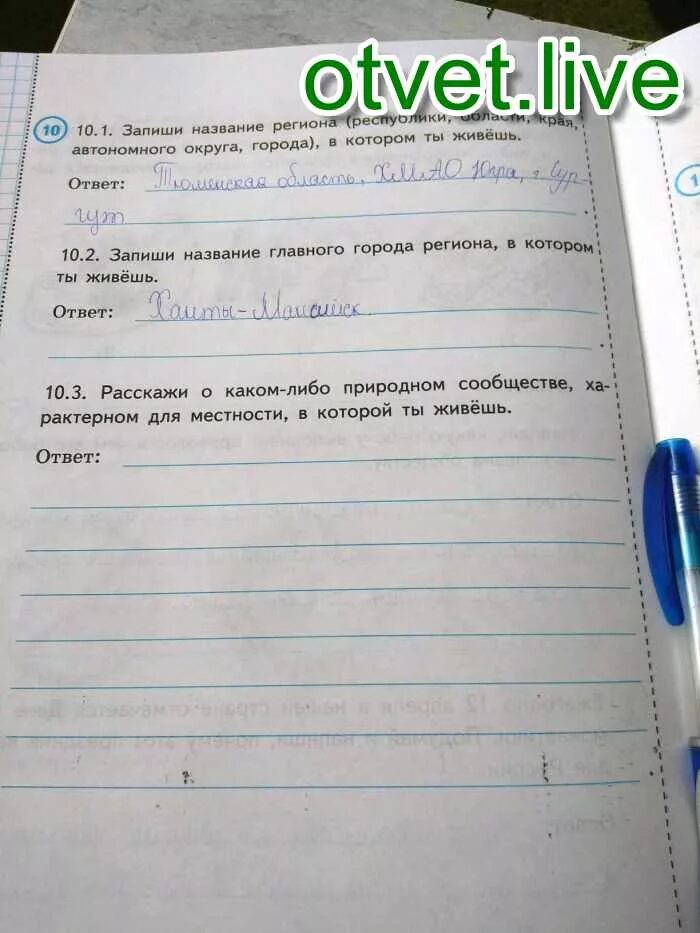 otvet.live
10 10.1. Запиши название региона (республики, области, края,
автономного округа, города), в котором ты живёшь.
Ответ: Тюменская область, ХМАО Югра, г Сур-
гут .
10.2. Запиши название главного города региона, в котором
ты живёшь.
Ответ: Ханты-Мансийск
.
10.3. Расскажи о каком-либо природном сообществе, ха-
рактерном для местности, в которой ты живёшь.
Ответ:
1